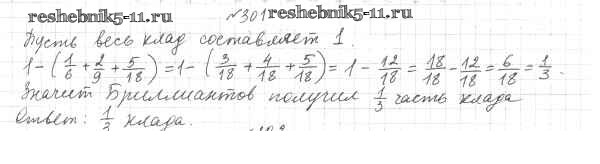 reshebnik5-11.ru №301 reshebnik5-11.ru
Пусть весь клад составляет 1.
1-(1/6+2/9+5/18)=1-(3/18+4/18+5/18)=1-12/18=18/18-12/18=6/18=1/3.
Значит Бриллиантов получил 1/3 часть клада
Ответ: 1/3 клада.